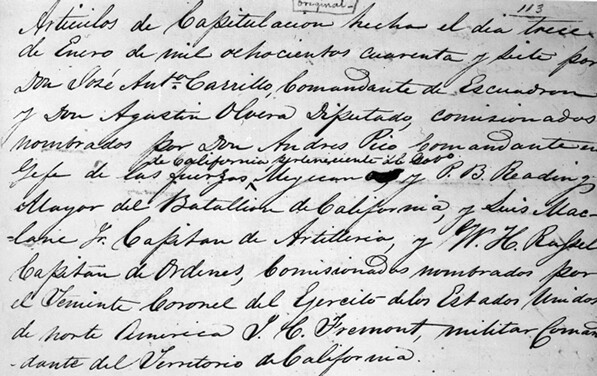 original
113
Articulos de Capitulacion hecha el dia trese
de Enero de mil ochocientos cuarenta y siete por
Don José Anto. Carrillo, Comandante de Escuadron
y Don Agustin Olvera Diputado, comisionados
nombrados por Don Andres Pico Comandante en
de California perteneciente al
Gefe de las fuerzas Mejicanas y P. B. Reading
Mayor del Batallion de California y Luis Mac-
-lane Jr. Capitan de Artilleria, y W. H. Russel
Capitan de Ordenes, Comisionados nombrados por
el Teniente Coronel del Ejercito de los Estados Unidos
de norte America J. C. Fremont, militar Coman
-dante del Territorio de California.